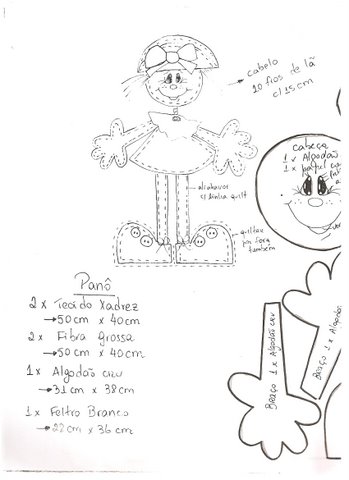 cabelo
10 fios de lã
c/ 15 cm
cabeça
1 x Algodão
1 x papel
alinhavos
c/ linha quilt
quiltar
por fora
também
Panô
2 x Tecido Xadrez
→ 50 cm x 40 cm
2 x Fibra Grossa
→ 50 cm x 40 cm
1 x Algodão cru
→ 31 cm x 38 cm
1 x Feltro Branco
→ 22 cm x 36 cm
BRAÇO 1 x Algodão CRU
BRAÇO 1 x Algodão